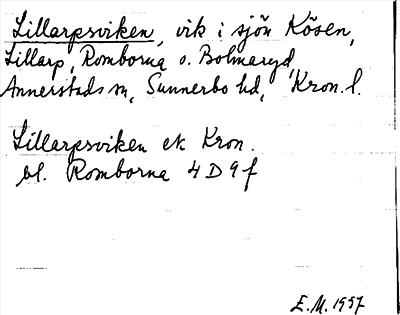 Lillarpsviken, vik i sjön Kösen,
Lillarp, Romborna o. Bolmaryd,
Annerstads sn, Sunnerbo hd, Kron. l.
Lillarpsviken ek Kron.
bl. Romborna 4 D 9 f
E.M. 1957